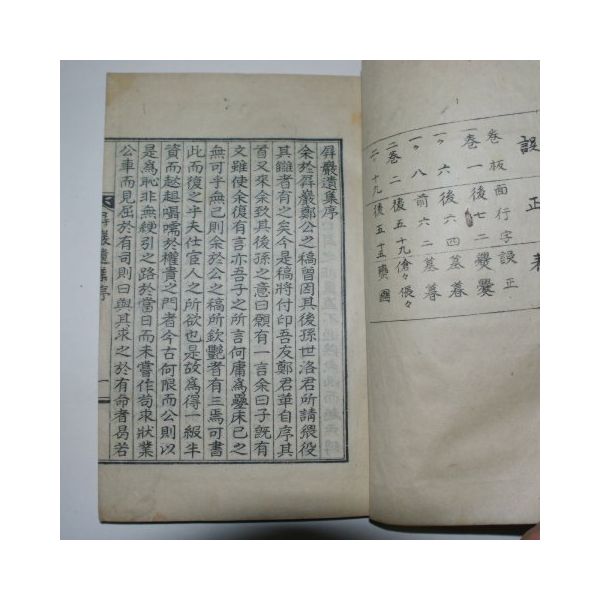 誤正表
卷板面行字誤正
卷一後七二爨㸑
一〃六後六四墓暮
一〃六前六二墓暮
二卷八後五十九傖々倀々
二〃十九後五十五
屛巖遺集序
余於屛巖鄭公之稿曾因其後孫世洛君所請猥役
其讎者有之矣今是稿將付印吾友鄭君華自序其
首又來余致其後孫之意曰願有一言余曰子旣有
文雖使余復有言亦吾子之所言何庸爲疊床已之
無可乎無已則余於公之稿所欽艶者有三焉可書
此而復之乎夫仕宦人之所欲也是故爲得一級半
資而趑趄囁嚅於權貴之門者今古何限而公則以
是爲恥非無梗引之路於當日而未嘗作苟求狀業
公車而見屈於有司則曰與其求之於有命者曷若
屛巖遺集序
一